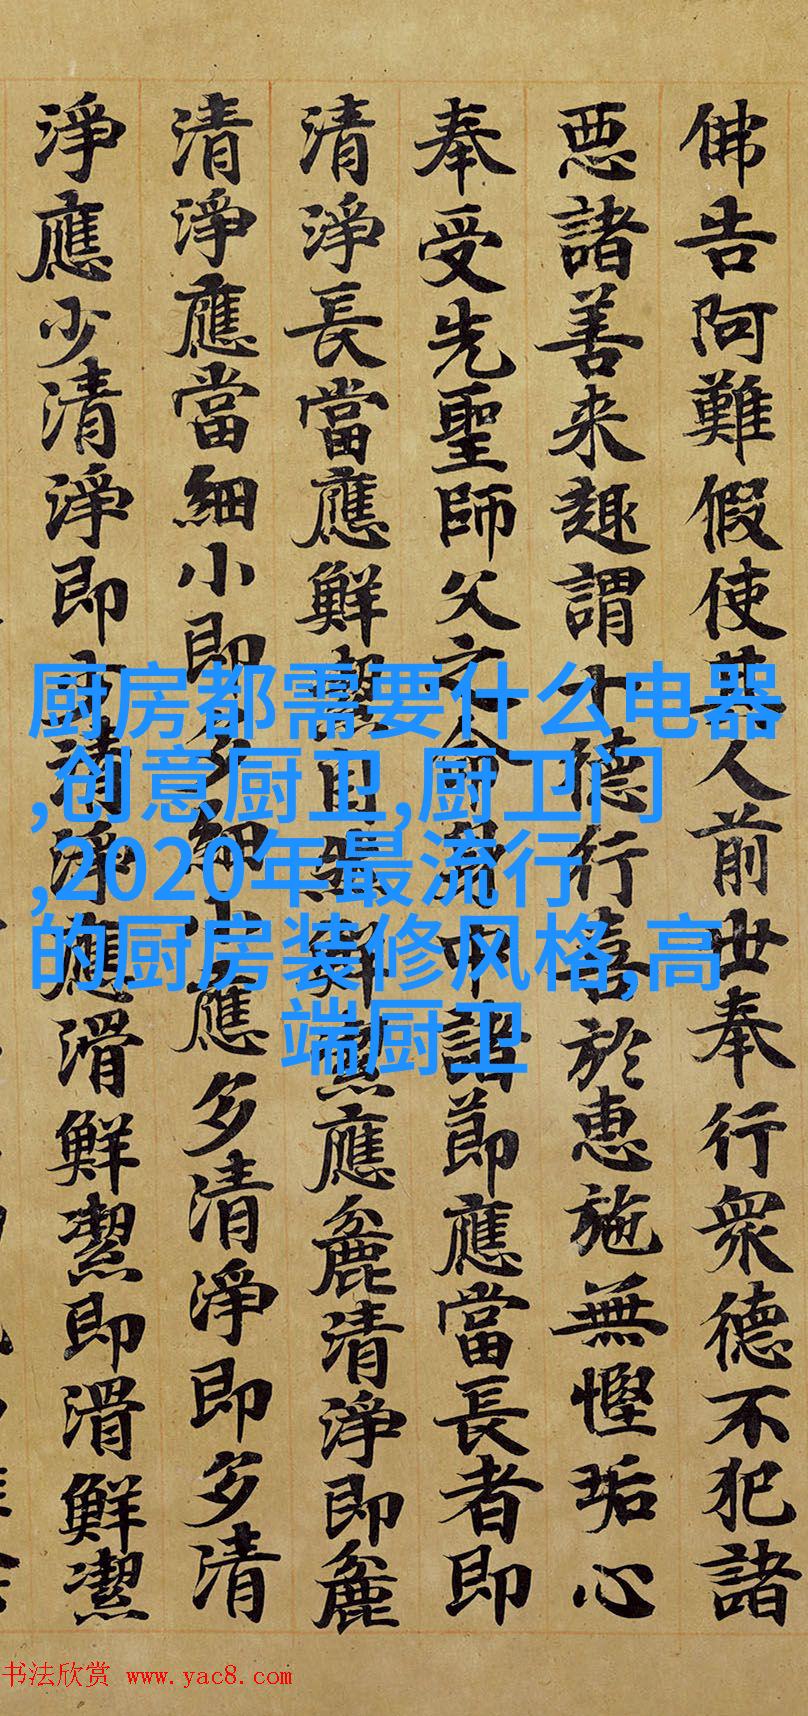 佛告阿難假使其人前世奉行衆德不犯諸
悪諸善来趣謂十德行喜於惠施無慳垢心
奉受先聖師父之命骨中諸節應當長者即
清淨長當應鮮潔自鮮潔應麁清淨即麁
清淨應當細小即細小應多清淨即多清
淨應少清淨即清淨應滑鮮潔即滑鮮潔
厨房都需要什么电器
,创意厨卫,厨卫门
,2020年最流行
的厨房装修风格,高
端厨卫
书法欣赏 www.yac8.com